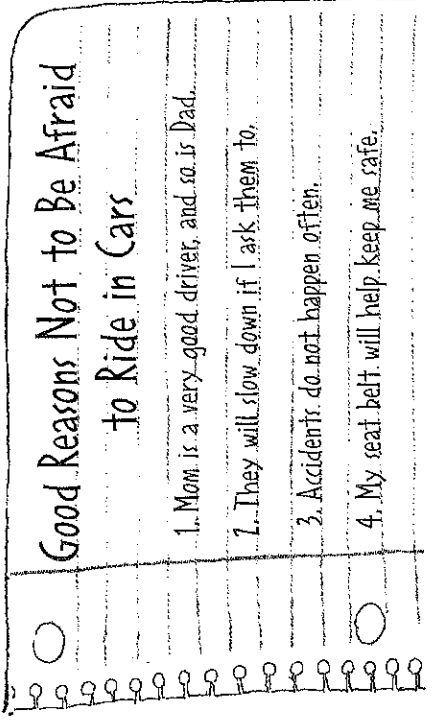 Good Reasons Not to Be Afraid
to Ride in Cars
1. Mom is a very good driver, and so is Dad.
2. They will slow down if I ask them to.
3. Accidents do not happen often.
4. My seat belt will help keep me safe.